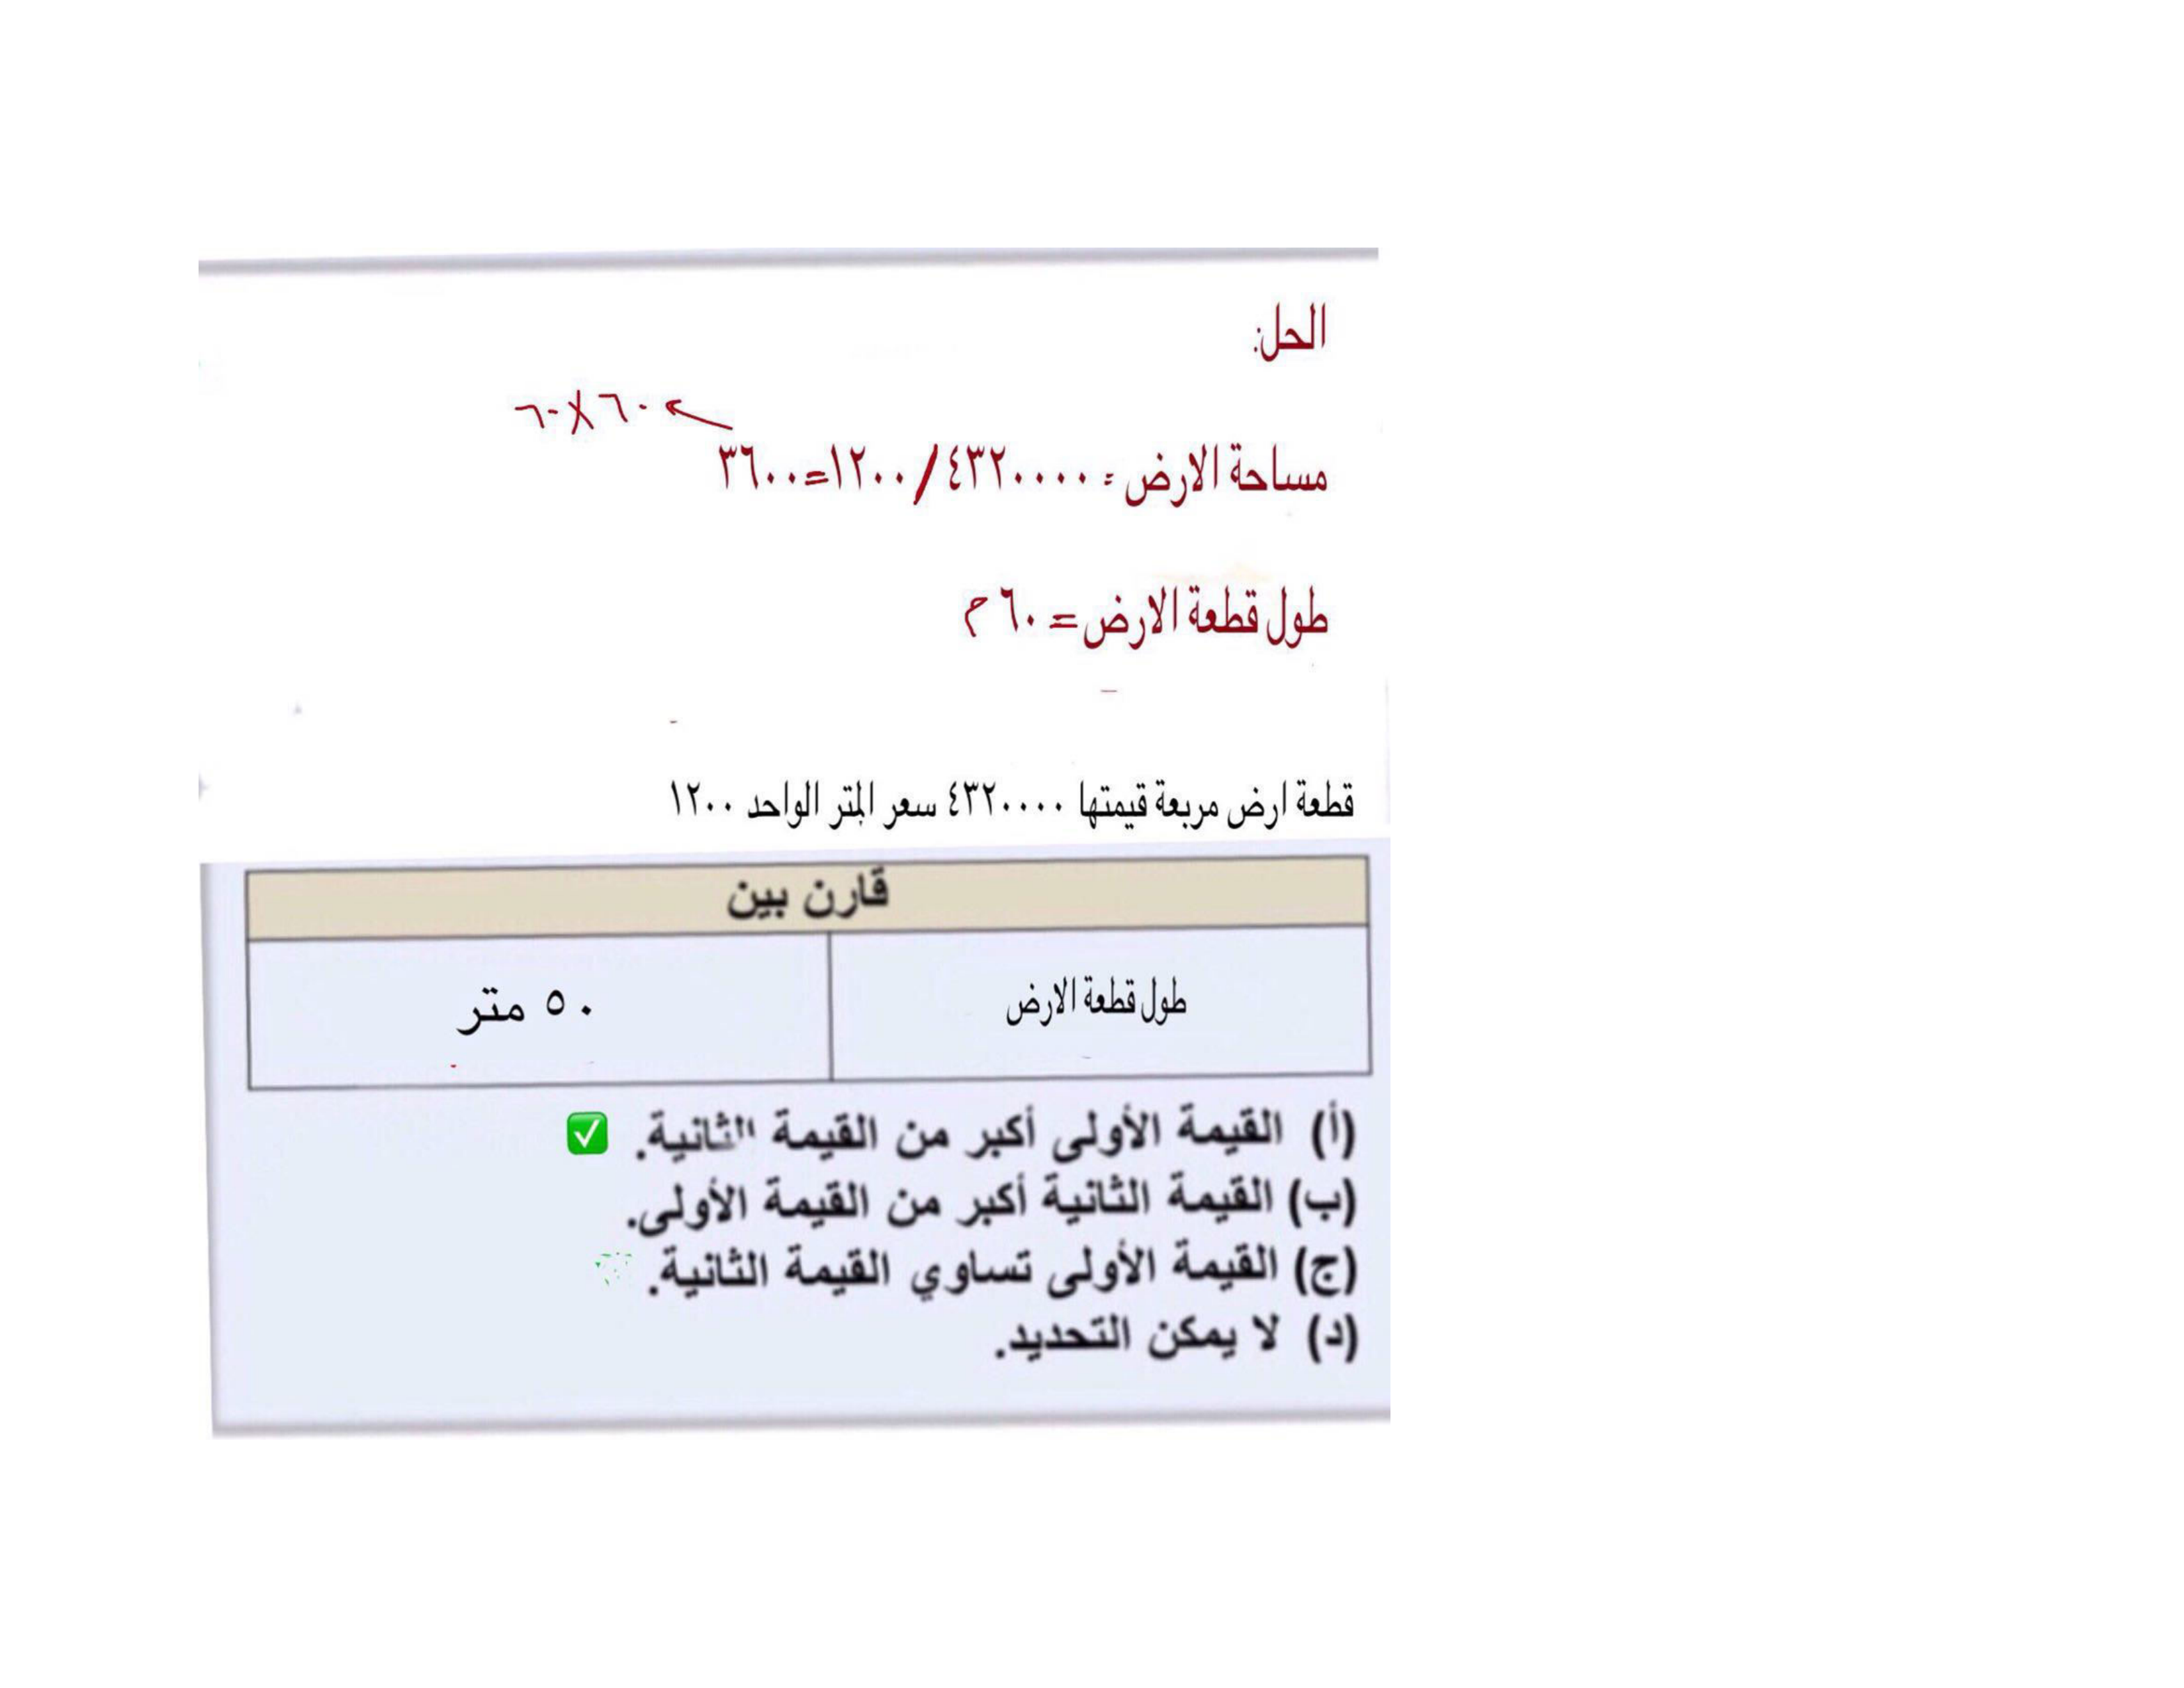 الحل:
٦٠×٦٠
مساحة الارض = ٤٣٢٠٠٠٠ / ١٢٠٠=٣٦٠٠
طول قطعة الارض= ٦٠م
قطعة ارض مربعة قيمتها ٤٣٢٠٠٠٠ سعر المتر الواحد ١٢٠٠
قارن بين
طول قطعة الارض
٥٠ متر
(أ) القيمة الأولى أكبر من القيمة الثانية. ✅
(ب) القيمة الثانية أكبر من القيمة الأولى.
(ج) القيمة الأولى تساوي القيمة الثانية.
(د) لا يمكن التحديد.